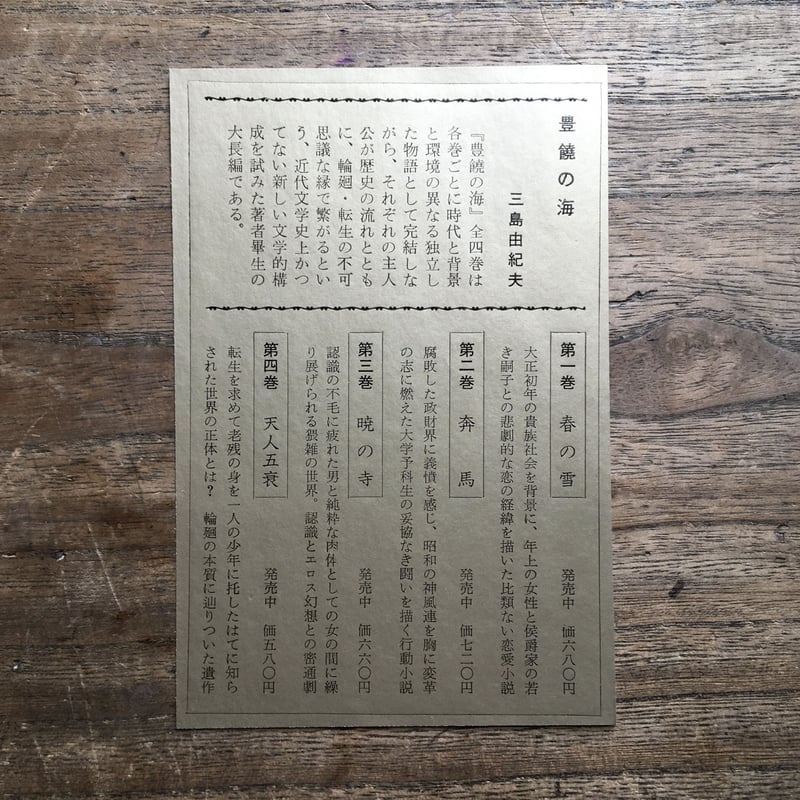 豊饒の海
三島由紀夫
『豊饒の海』全四巻は
各巻ごとに時代と背景
と環境の異なる独立し
た物語として完結しな
がら、それぞれの主人
公が歴史の流れととも
に、輪廻・転生の不可
思議な縁で繋がるとい
う、近代文学史上かつ
てない新しい文学的構
成を試みた著者畢生の
大長編である。
第一巻 春の雪 発売中 価六八〇円
大正初年の貴族社会を背景に、年上の女性と侯爵家の若
き嗣子との悲劇的な恋の経緯を描いた比類ない恋愛小説
第二巻 奔馬 発売中 価七二〇円
腐敗した政財界に義憤を感じ、昭和の神風連を胸に変革
の志に燃えた大学予科生の妥協なき闘いを描く行動小説
第三巻 暁の寺 発売中 価六六〇円
認識の不毛に疲れた男と純粋な肉体としての女の間に繰
り展げられる猥雑の世界。認識とエロス幻想との密通劇
第四巻 天人五衰 発売中 価五八〇円
転生を求めて老残の身を一人の少年に托したはてに知ら
された世界の正体とは？ 輪廻の本質に辿りついた遺作